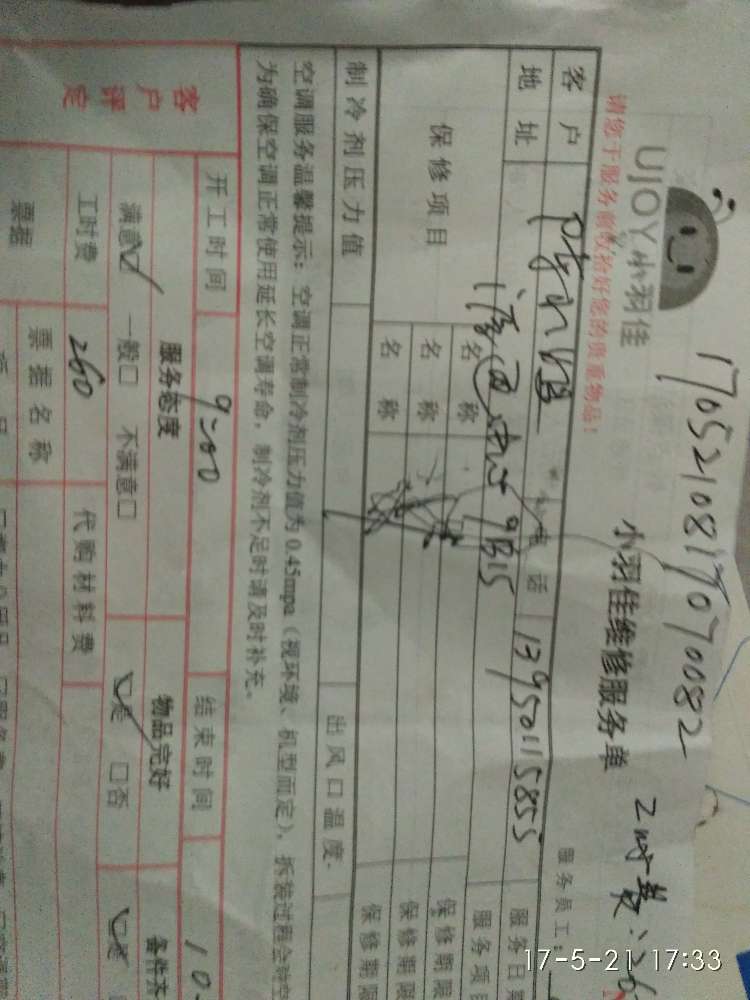 1705210817070082
UJOY小羽佳
小羽佳维修服务单
请您于服务前收拾好您的贵重物品!
服务员工:
客户
电话 13950115855
服务日期
地址
9B15
服务项目
保修项目
名称
保修期限
名称
保修期限
名称
保修期限
制冷剂压力值
出风口温度
空调服务温馨提示: 空调正常制冷剂压力值为0.45mpa (视环境、机型而定), 拆装过程会
为确保空调正常使用延长空调寿命, 制冷剂不足时请及时补充。
客户评定
开工时间 9:00
结束时间 10
服务态度
物品完好
备件齐
满意☑ 一般□ 不满意□
☑是 □否
☑是
工时费 260
代购材料费
票据
票据名称
17-5-21 17:33